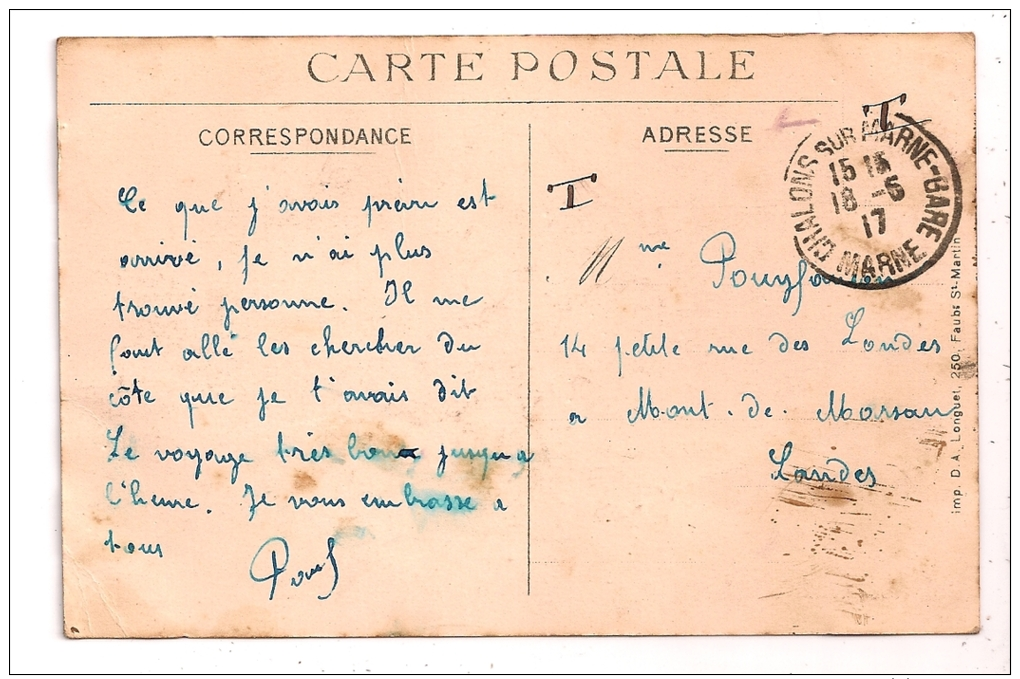 CARTE POSTALE
CORRESPONDANCE
Ce que j'avais prévu est
arrivé, je n'ai plus
trouvé personne. Il me
faut allé les chercher du
côte que je t'avais dit
Le voyage très bon jusqu'a
l'heure. Je vous embrasse a
tous
ADRESSE
T
T
CHALONS SUR MARNE-GARE
15 15
18 -5
17
MARNE
Mme
14 petite rue des Landes
a Mont-de-Marsan
Landes
Imp. D.A. Longuet, 250, Faubg St-Martin